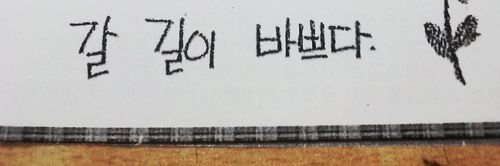 갈 길이 바쁘다.